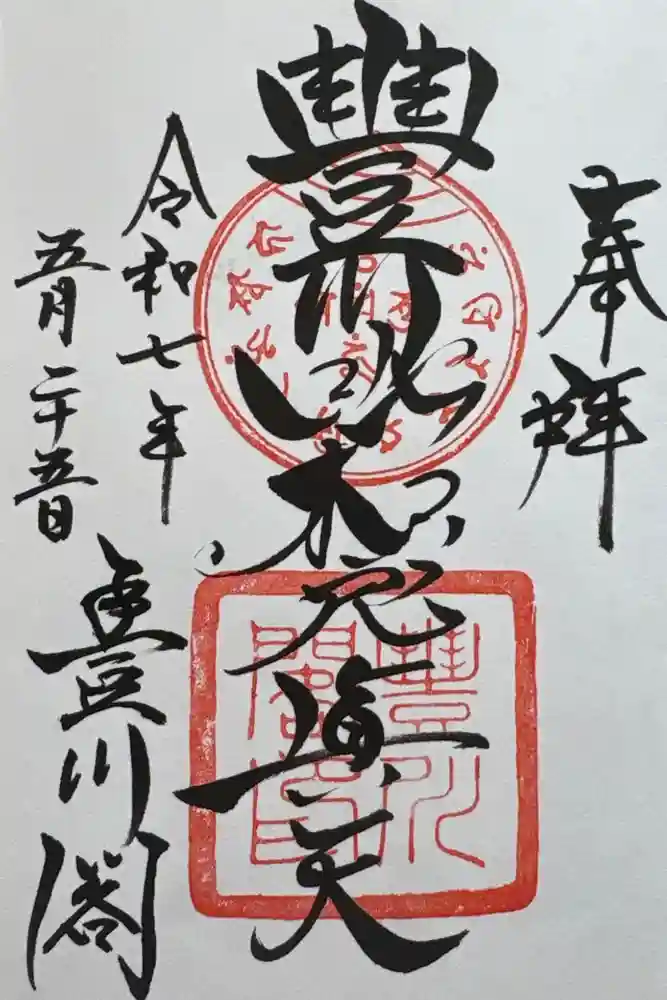 奉拝
豐川吒枳尼真天
令和七年
五月二十五日
豊川閣
豊川
閣印